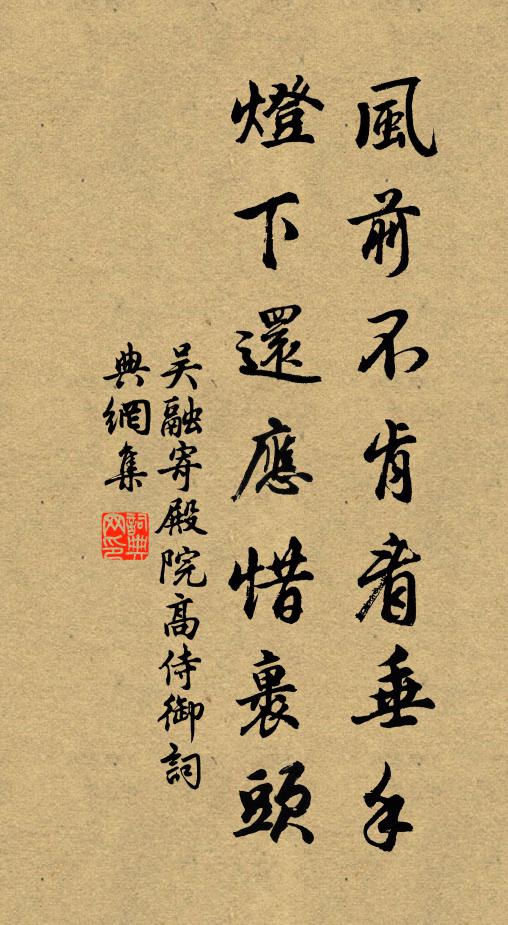 風前不肯看垂手
燈下還應惜裹頭
吴融寄殿院高侍御詞
典網集
詞典網印